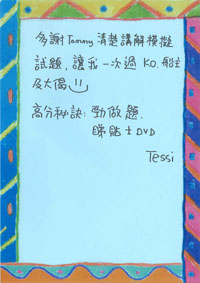 多謝 Tammy 清楚講解模擬
試題, 讓我一次過 KO. 船主
及大偈
高分秘訣: 勁做題.
睇貼士DVD
Tessi